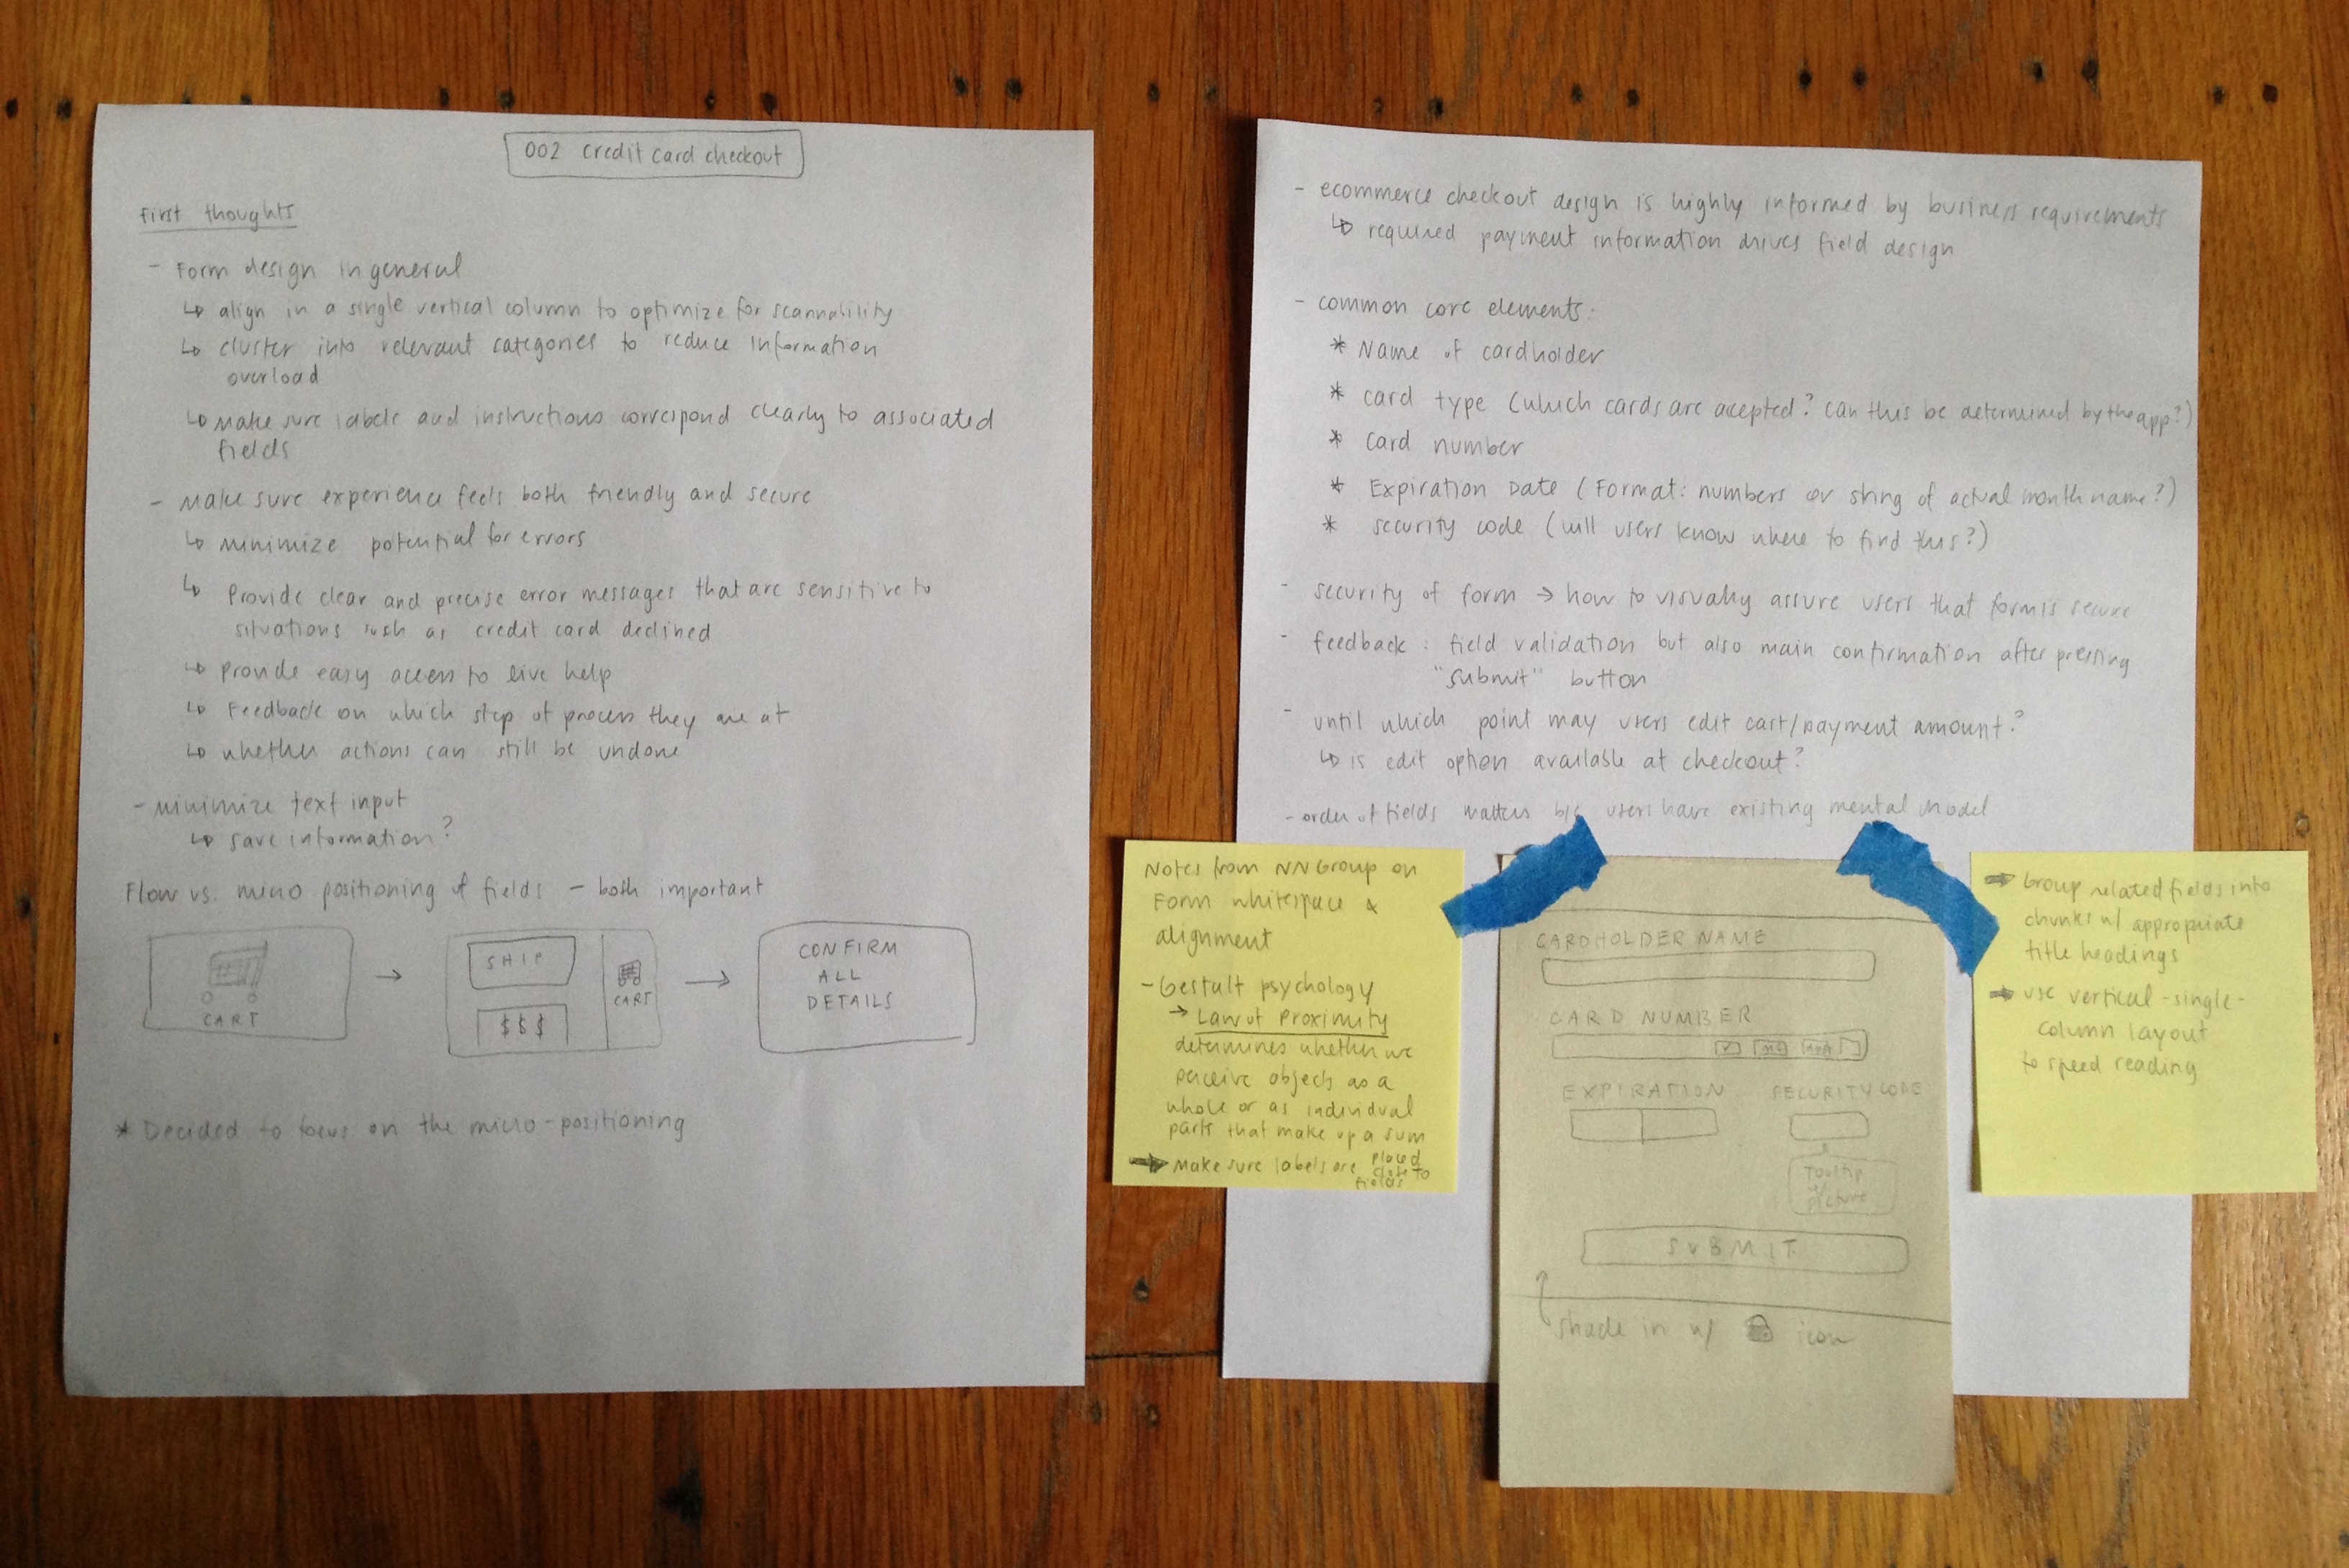 002 credit card checkout
First thoughts
- Form design in general
↳ align in a single vertical column to optimize for scannability
↳ cluster into relevant categories to reduce information
overload
↳ Make sure labels and instructions correspond clearly to associated
fields
- Make sure experience feels both friendly and secure
↳ minimize potential for errors
↳ Provide clear and precise error messages that are sensitive to
situations such as credit card declined
↳ provide easy access to live help
↳ Feedback on which step of process they are at
↳ whether actions can still be undone
- minimize text input
↳ save information?
Flow vs. micro positioning of fields - both important
CART
→
SHIP
$$$
CART
→
CONFIRM
ALL
DETAILS
* Decided to focus on the micro-positioning
- ecommerce checkout design is highly informed by business requirements
↳ required payment information drives field design
- common core elements:
* Name of cardholder
* card type (which cards are acepted? can this be determined by the app?)
* card number
* Expiration Date (Format: numbers or string of actual month name?)
* security code (will users know where to find this?)
- security of form → how to visually assure users that form is secure
- feedback: field validation but also main confirmation after pressing
"submit" button
- until which point may users edit cart/payment amount?
↳ is edit option available at checkout?
- order of fields matters b/c users have existing mental model
Notes from NN Group on
Form whitespace &
alignment
- Gestalt psychology
→ Law of Proximity
determines whether we
perceive objects as a
whole or as individual
parts that make up a sum
→ Make sure labels are placed
close to
fields
CARDHOLDER NAME
CARD NUMBER
EXPIRATION SECURITY CODE
Tooltip
w/
picture
SUBMIT
shade in w/ icon
→ Group related fields into
chunks w/ appropriate
title headings
→ use vertical-single-
column layout
to speed reading